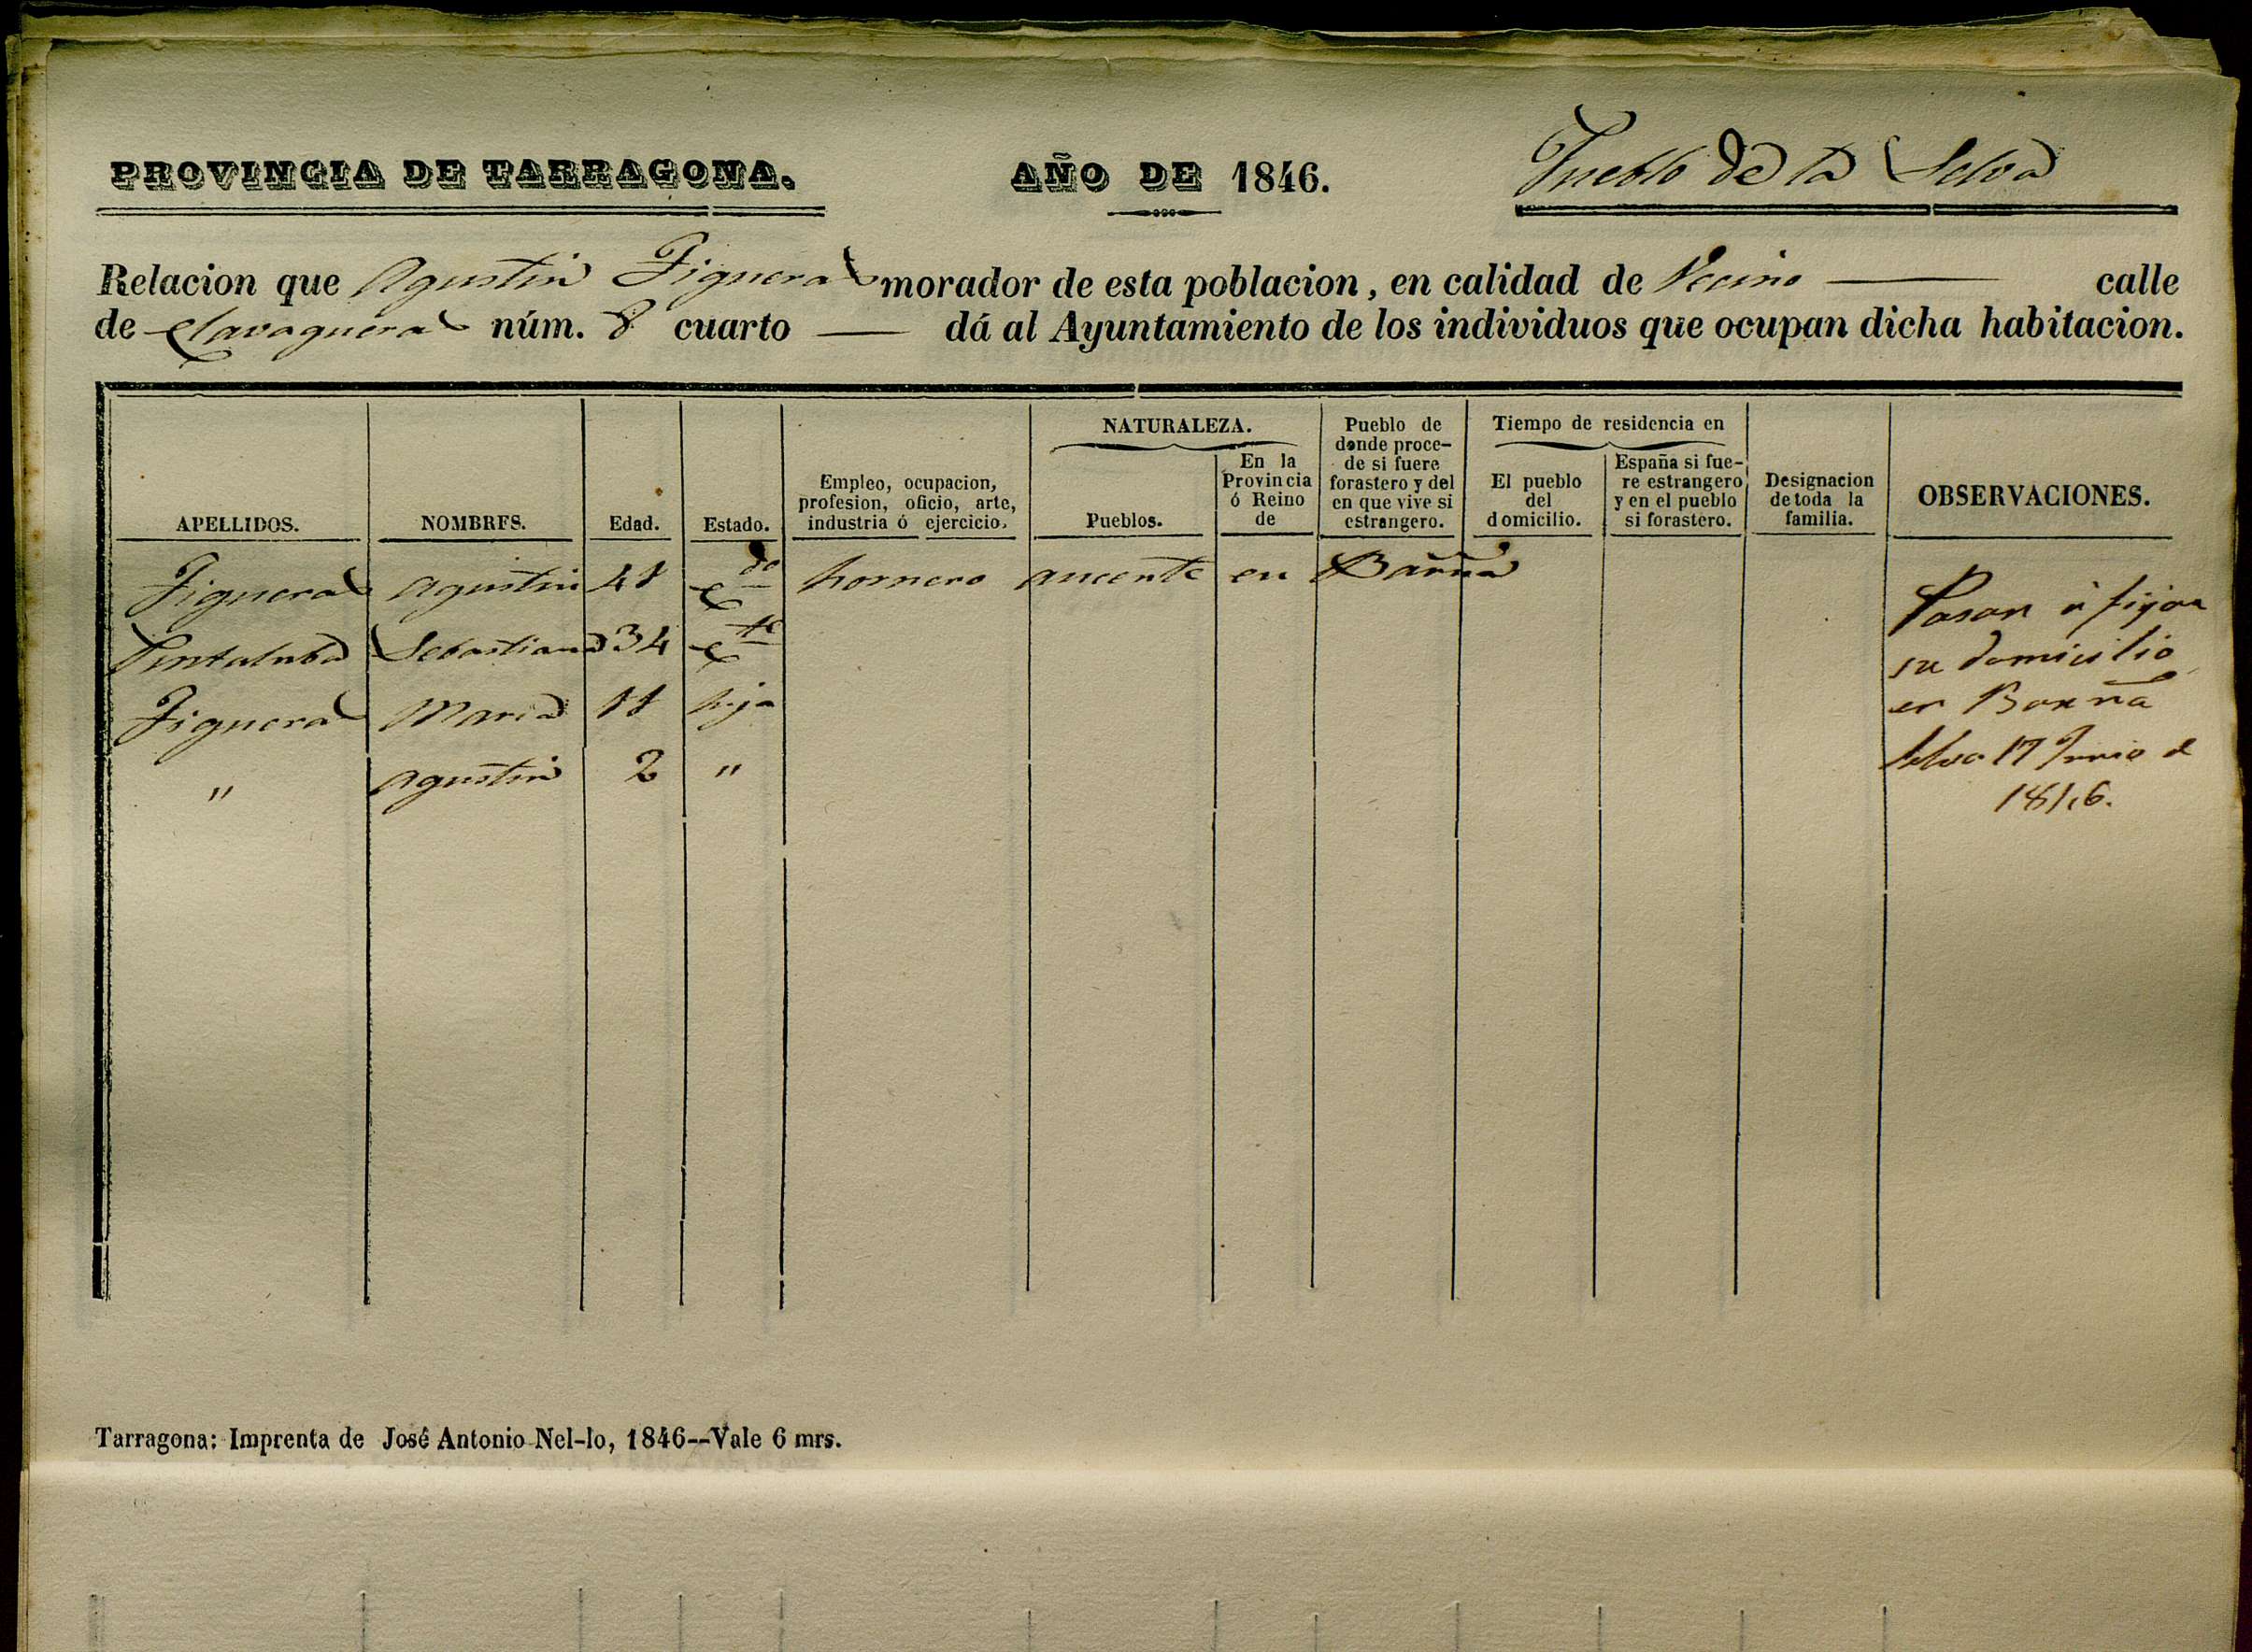 PROVINCIA DE TARRAGONA. AÑO DE 1846. Pueblo de la Selva
Relacion que Agustin Figueras morador de esta poblacion, en calidad de Vecino — calle
de Clavaguera núm. 8 cuarto — dá al Ayuntamiento de los individuos que ocupan dicha habitacion.
APELLIDOS.
NOMBRES.
Edad.
Estado.
Empleo, ocupacion,
profesion, oficio, arte,
industria ó ejercicio.
NATURALEZA.
Pueblos.
En la
Provincia
ó Reino
de
Pueblo de
donde proce-
de si fuere
forastero y del
en que vive si
estrangero.
Tiempo de residencia en
El pueblo
del
domicilio.
España si fue-
re estrangero
y en el pueblo
si forastero.
Designacion
de toda la
familia.
OBSERVACIONES.
Figueras Agustin 41 Cdo hornero aucente en Barña
Sebastiana 34 Cte
Figueras Maria 11 hija
" Agustin 2 "
Pasan á fijar
su domicilio
en Barña
Selva 17 Junio d
1846.
Tarragona: Imprenta de José Antonio Nel-lo, 1846--Vale 6 mrs.